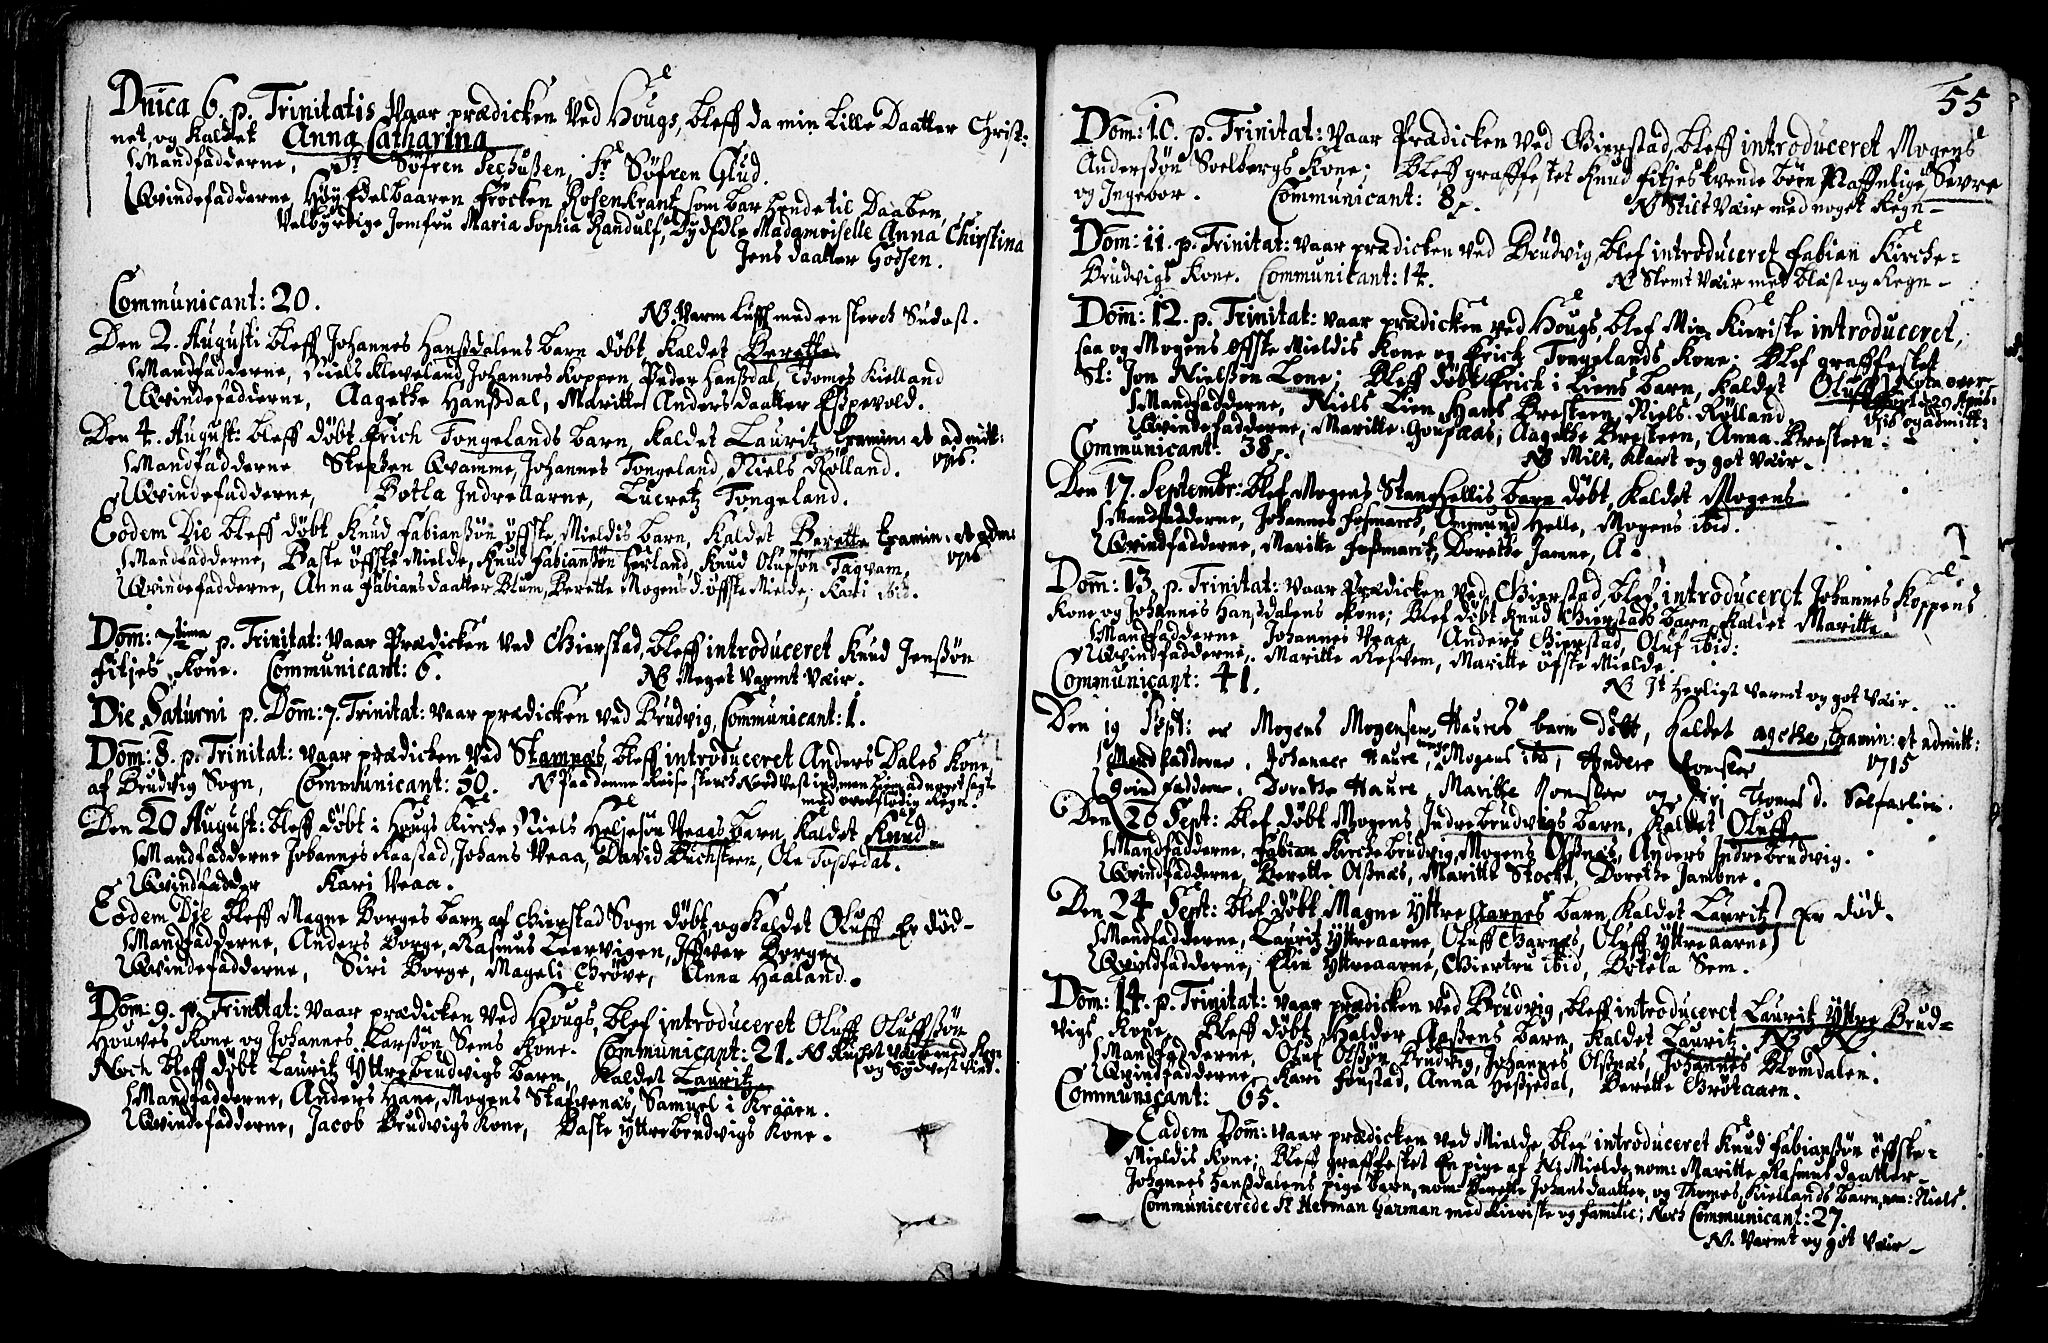 Dnica 6. p. Trinitatis Vaar prædicken Ved Hougs, bleff da min Lille Daatter Christ:
net, og Kaldet Anna Catharina
Mandfadderne, Sr Söfren Seehußen, Sr Söfren Glud.
Qvindefadderne, Höy Edelbaaren Fröcken Rosenkrantz som bar hende til Daaben,
Velbyrdige Jomfru Maria Sophia Randulf, Dyd Edle Madamoiselle Anna Chirstina
Jens daatter Godsen.
Communicant: 20.
NB Varm Lufft med en sterck Sudost.
Den 2. Augusti bleff Johannes Hanßdalens barn döbt, kaldet Berette
Mandfadderne, Niels Kleveland, Johannes Koppen, Peder Hanßdal, Thomes Kielland
Qvindefadderne, Aagethe Hanßdal, Maritte Anders daatter Eßpevold.
Den 4. August: bleff döbt Erich Tongelands barn, kaldet Lauritz Examin: et admitt:
Mandfadderne Steffen Qvamme, Johannes Tongeland, Niels Rölland. 1716.
Qvindefadderne, Botla Indre Aarne, Lucretz Tongeland.
Eodem Die bleff döbt, Knud Fabianßön öffste Mieldis barn, Kaldet Berette Examin. et adm:
Mandfadderne, Baste öffste Mielde, Knud Fabianßön Herland, Knud Olufsön Taqvam, 1716
Qvindefadderne, Anna Fabians daatter Blum, Berette Mogens d. öffste Mielde, Kari ibid.
Dom: 7tima p. Trinitat: Vaar Prædicken Ved Gierstad, bleff introduceret Knud Jenßön
Fitjes Kone. Communicant: 6. NB Meget Varmt Vær.
Die Saturni p. Dom: 7. Trinitat: vaar prædicken ved Brudvig, Communicant: 1.
Dom: 8. p. Trinitat: vaar prædicken ved Stamnæs, bleff introduceret Anders Dales Kone,
af Brudvig Sogn, Communicant: 50. N Paa denne Reise sterck Nordvest ind, men hiem ad noget sagt
med overflödig Regn.
Den 20 August: bleff döbt i Hougs Kirche Niels Heljesön Veaas barn, kaldet Knud
Mandfadderne Johannes Raastad, Johans Veaa, David Buchsteen, Ole Tossedal.
Qvindfadder Kari Veaa.
Eodem Die bleff Magne Borges barn af Gierstad Sogn döbt, og kaldet Oluff Er död-
Mandfadderne, Anders Borge, Rasmus Leervigen, Iffver Borge.
Qvindefadderne, Siri Borge, Mageli Gröve, Anna Haaland.
Dom: 9. p. Trinitat: vaar prædicken ved Hougs, blef introduceret Oluff Oluffsön
Houves Kone og Johannes Larßön Sems Kone. Communicant: 21. N Kuhlt Vær med Regn
Noch bleff döbt Lauritz Yttrebrudvigs barn, kaldet Lauritz og Sydvest Vind.
Mandfadderne, Anders Hane, Mogens Stafvenæs, Samuel i Krossen.
Qvindefadderne, Jacob Brudvigs Kone, Baste Yttrebrudvigs Kone.
55
Dom: 10. p. Trinitat: Vaar Prædicken Ved Gierstad, bleff introduceret Mogens
Anderßön Soelbergs Kone; Bleff graffestet Knud Fitjes tvende börn Naffnlige, Sevre
og Ingebor. Communicant: 8. NB Stilt Vær med noget Regn-
Dom: 11. p. Trinitat: vaar prædicken ved Brudvig, blef introduceret Fabian Kirche-
Brudvigs Kone. Communicant: 14. NB Slemt Vær med blæst og Regn-
Dom: 12. p. Trinitat: vaar prædicken ved Hougs, blef Min Kieriste introduceret,
saa og Mogens öffste Mieldis Kone og Erich Tongelands Kone; Blef graffestet
Sl: Jon Nielßön Lone; Bleff döbt Erich i Liens barn, kaldet Oluff Nota over-
Mandfadderne, Niels Lien, Hans Bresteen, Niels Rölland hört d. 29 April:
Qvindefadderne, Maritte Soufnæs, Aagethe Bresteen, Anna Bresteen. 1716 og admitt:
Communicant: 38. NB Milt, klart og got Vær.
Den 17. Septembr: Blef Mogens Stanghellis barn döbt, kaldet Mogens
Mandfadderne, Johannes Foßmarch, Ommund Helle, Mogens ibid.
Qvindfadderne, Maritte Foßmarck, Dorethe Jamne, A.
Dom: 13. p. Trinitat: vaar Prædicken ved Gierstad, blef introduceret Johannes Koppens
Kone og Johannes Hansdalens Kone; Blef döbt Knud Gierstads barn, kaldet Maritte
Mandfadderne Johannes Veaa, Anders Gierstad, Oluf ibid:
Qvindfadderne, Maritte Refvem, Maritte öfste Mielde.
Communicant: 41. NB It Herligt varmt og got Vær.
Den 19 Sept: er Mogens Mogensen Haures barn döbt, kaldet agethe, Examin: et admitt:
Mandfadderne, Johannes Haure, unge Mogens ibd, Anders Romslee 1715
Qvindfadderne, Dorethe Haure, Marithe Romslee og Siri Thomes d. Solfarlien.
Den 20 Sept: Blef döbt Mogens Indrebrudvigs barn, kaldet Oluff,
Mandfadderne, Fabian Kirchebrudvig, Mogens Olßnæs, Anders Indrebrudvig.
Qvindfadderne, Berette Olßnæs, Maritte Stocke, Dorethe Jambne.
Den 24 Sept: blef döbt Magne Yttre Aarnes barn, kaldet Lauritz Er död.
Mandfadderne, Lauritz Yttreaarne, Oluff Garnæs, Oluff Yttreaarne
Qvindfadderne, Elin Yttreaarne, Giertru ibid, Botela Sem.
Dom: 14. p. Trinitat: vaar prædicken ved Brudvig, bleff introduceret Lauritz Yttre Brud-
vigs Kone, Bleff döbt Haldor Aaßens barn, kaldet Lauritz. NB NB
Mandfadderne, Oluf Olßön Brudvig, Johannes Olßnæs, Johannes Blomdalen.
Qvindfadderne, Kari Foustad, Anna Hesjedal, Berette Gröttaaen.
Communicant: 65.
Eadem Dom: vaar prædicken ved Mielde, blef introduceret Knud Fabianßön öffste-
Mieldis Kone; Bleff graffestet En pige af N: Mielde, nom: Maritte Rasmus daatter-
Johannes Hanßdalens pige barn, nom: Berette Johans daatter, og Thomes Kiellands barn, nom: Niels.
Communicerede Sr Herman Garman med Kieriste og familie; Noch Communicant: 27.
N. Varmt og got Vær-